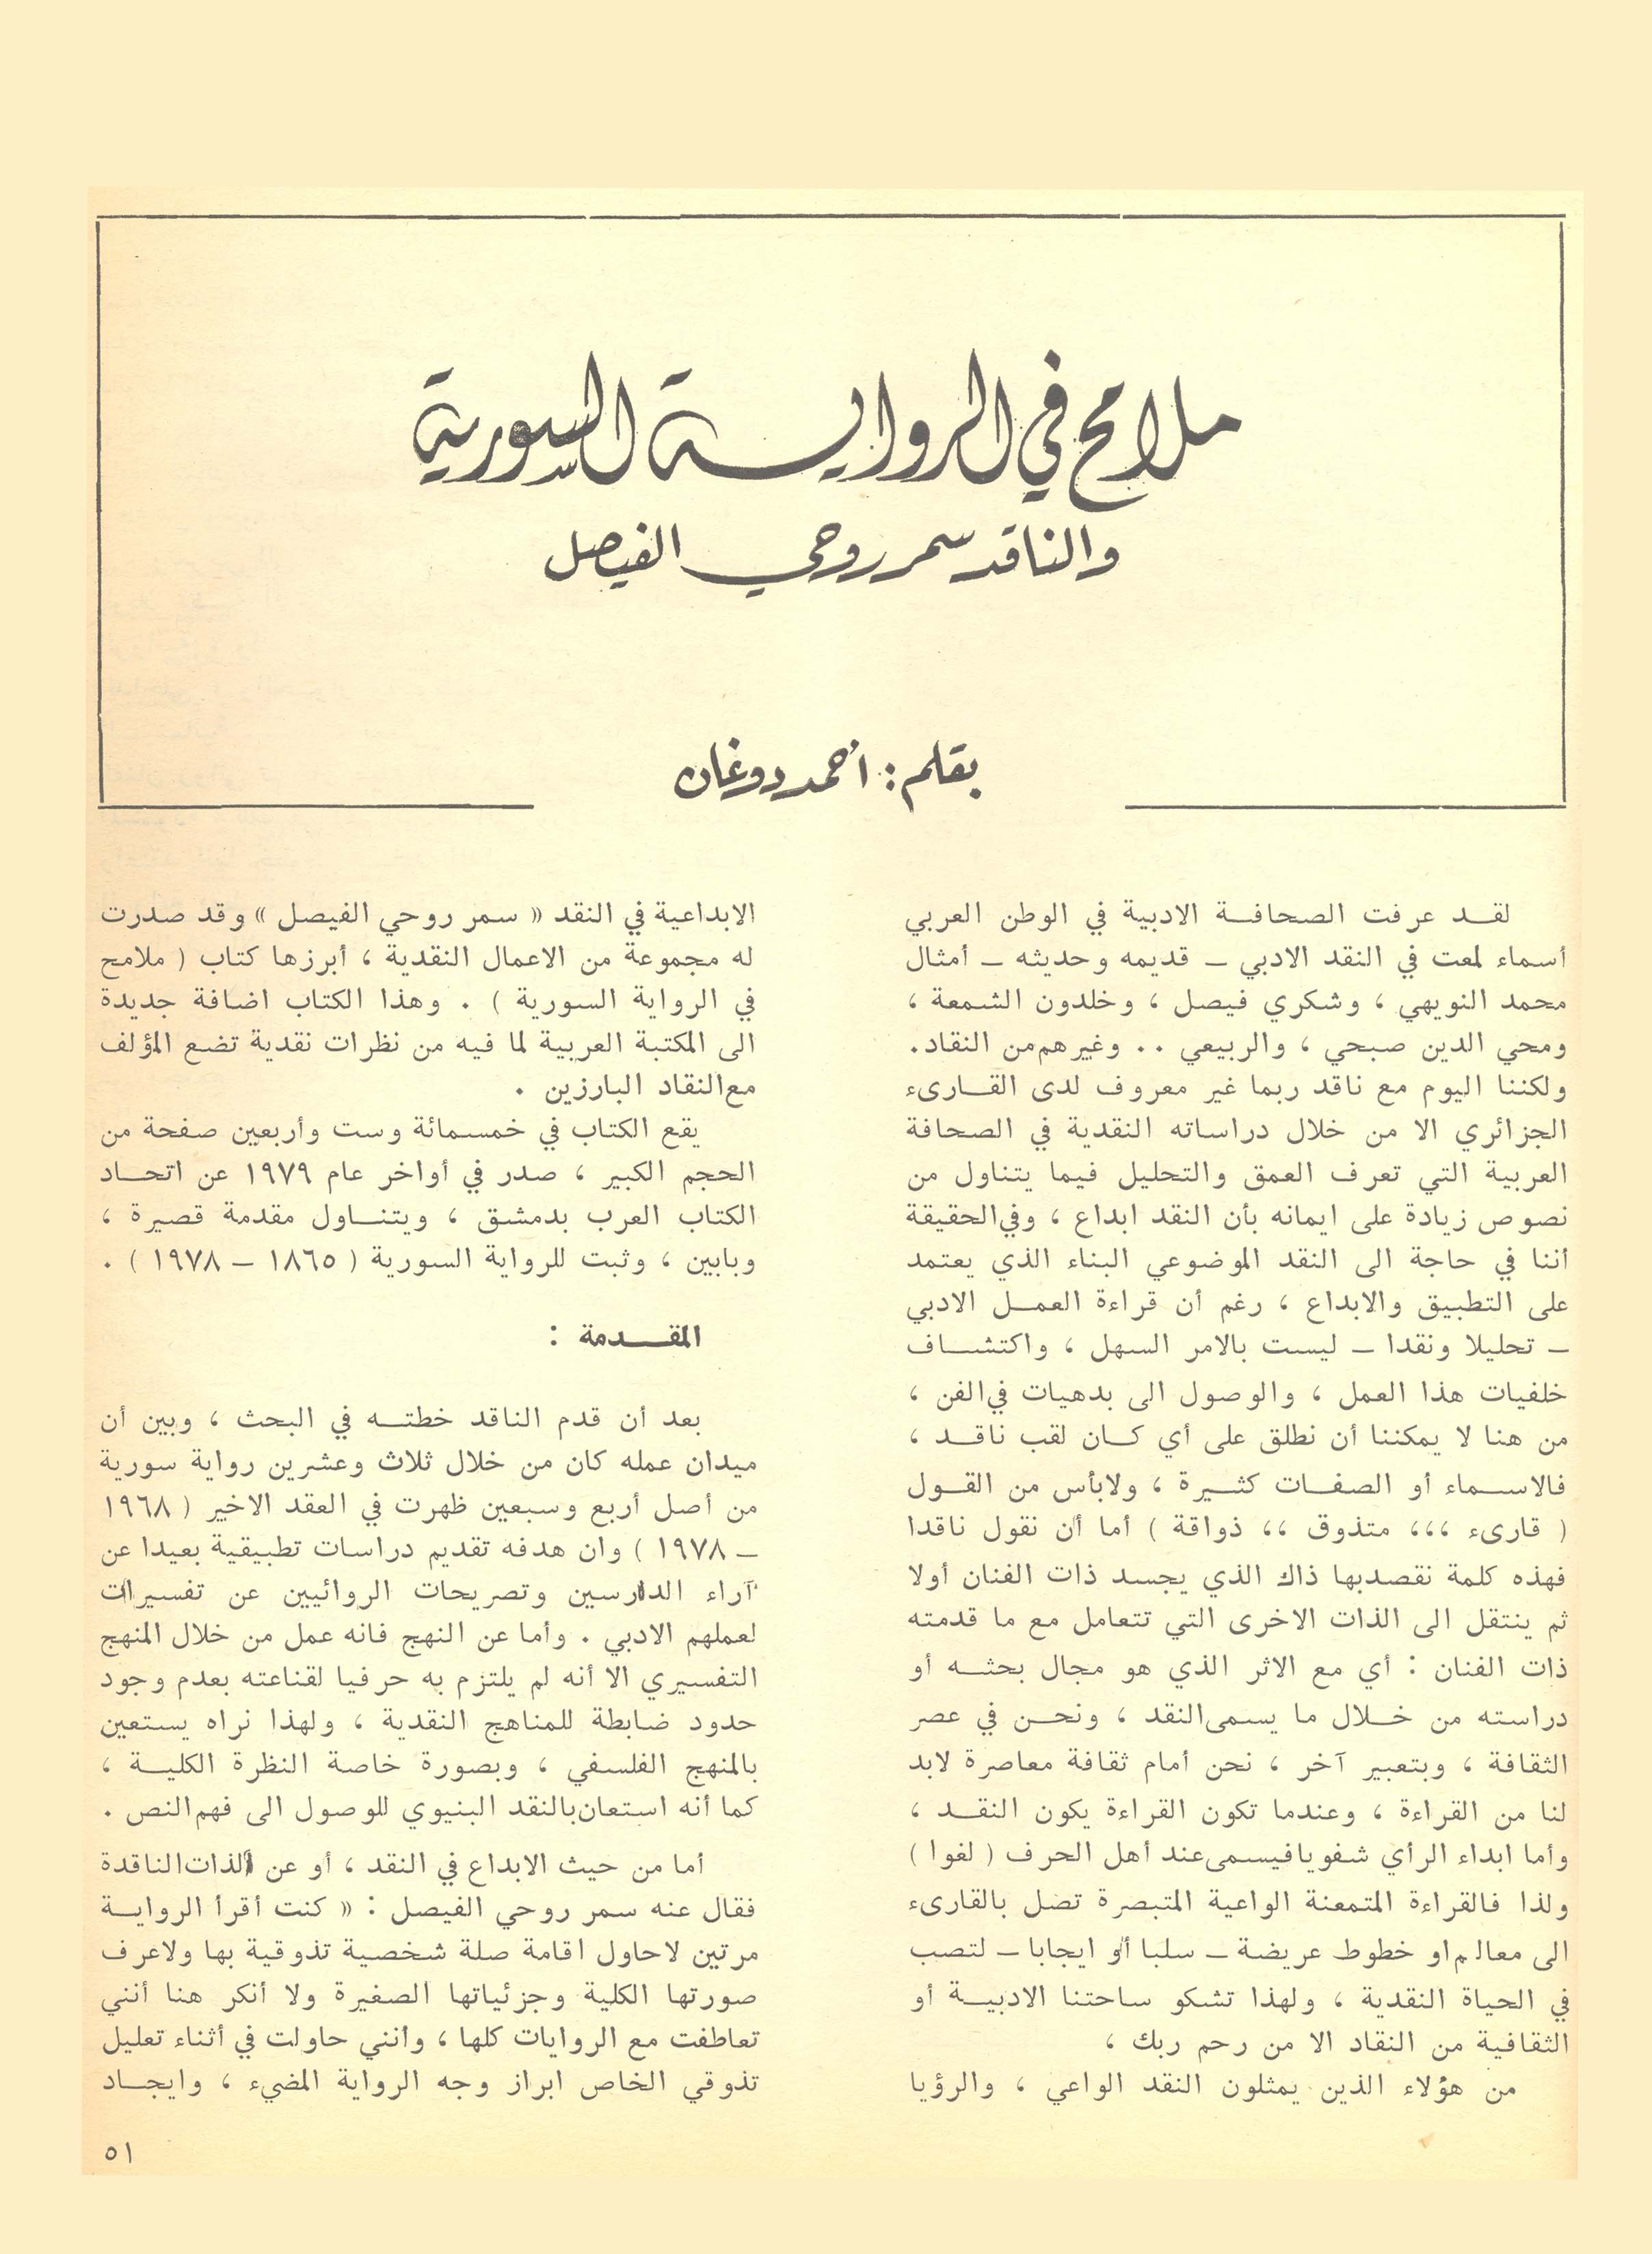 ملامح في الرواية السورية
والناقد سمر روحي الفيصل
بقلم : أحمد دوغان
لقد عرفت الصحافة الادبية في الوطن العربي
أسماء لمعت في النقد الادبي – قديمه وحديثه – أمثال
محمد النويهي ، وشكري فيصل ، وخلدون الشمعة ،
ومحي الدين صبحي ، والربيعي .. وغيرهم من النقاد.
ولكننا اليوم مع ناقد ربما غير معروف لدى القارىء
الجزائري الا من خلال دراساته النقدية في الصحافة
العربية التي تعرف العمق والتحليل فيما يتناول من
نصوص زيادة على ايمانه بأن النقد ابداع ، وفي الحقيقة
أننا في حاجة الى النقد الموضوعي البناء الذي يعتمد
على التطبيق والابداع ، رغم أن قراءة العمل الادبي
– تحليلا ونقدا – ليست بالامر السهل ، واكتشاف
خلفيات هذا العمل ، والوصول الى بدهيات في الفن ،
من هنا لا يمكننا أن نطلق على أي كان لقب ناقد ،
فالاسماء أو الصفات كثيرة ، ولابأس من القول
( قارىء ،،، متذوق ،، ذواقة ) أما أن نقول ناقدا
فهذه كلمة نقصدبها ذاك الذي يجسد ذات الفنان أولا
ثم ينتقل الى الذات الاخرى التي تتعامل مع ما قدمته
ذات الفنان : أي مع الاثر الذي هو مجال بحثه أو
دراسته من خلال ما يسمى النقد ، ونحن في عصر
الثقافة ، وبتعبير آخر ، نحن أمام ثقافة معاصرة لابد
لنا من القراءة ، وعندما تكون القراءة يكون النقد ،
وأما ابداء الرأي شفويا فيسمى عند أهل الحرف ( لغوا )
ولذا فالقراءة المتمعنة الواعية المتبصرة تصل بالقارىء
الى معالم او خطوط عريضة – سلبا أو ايجابا – لتصب
في الحياة النقدية ، ولهذا تشكو ساحتنا الادبية أو
الثقافية من النقاد الا من رحم ربك ،
من هؤلاء الذين يمثلون النقد الواعي ، والرؤيا
الابداعية في النقد « سمر روحي الفيصل » وقد صدرت
له مجموعة من الاعمال النقدية ، أبرزها كتاب ( ملامح
في الرواية السورية ) . وهذا الكتاب اضافة جديدة
الى المكتبة العربية لما فيه من نظرات نقدية تضع المؤلف
مع النقاد البارزين .
يقع الكتاب في خمسمائة وست وأربعين صفحة من
الحجم الكبير ، صدر في أواخر عام ١٩٧٩ عن اتحاد
الكتاب العرب بدمشق ، ويتناول مقدمة قصيرة ،
وبابين ، وثبت للرواية السورية ( ١٨٦٥ – ١٩٧٨ ) .
المقدمة :
بعد أن قدم الناقد خطته في البحث ، وبين أن
ميدان عمله كان من خلال ثلاث وعشرين رواية سورية
من أصل أربع وسبعين ظهرت في العقد الاخير ( ١٩٦٨
– ١٩٧٨ ) وان هدفه تقديم دراسات تطبيقية بعيدا عن
آراء الدارسين وتصريحات الروائيين عن تفسيرات
لعملهم الادبي . وأما عن النهج فانه عمل من خلال المنهج
التفسيري الا أنه لم يلتزم به حرفيا لقناعته بعدم وجود
حدود ضابطة للمناهج النقدية ، ولهذا نراه يستعين
بالمنهج الفلسفي ، وبصورة خاصة النظرة الكلية ،
كما أنه استعان بالنقد البنيوي للوصول الى فهم النص .
أما من حيث الابداع في النقد ، أو عن الذات الناقدة
فقال عنه سمر روحي الفيصل : « كنت أقرأ الرواية
مرتين لاحاول اقامة صلة شخصية تذوقية بها ولاعرف
صورتها الكلية وجزئياتها الصغيرة ولا أنكر هنا أنني
تعاطفت مع الروايات كلها ، وأنني حاولت في أثناء تعليل
تذوقي الخاص ابراز وجه الرواية المضيء ، وايجاد
٥١